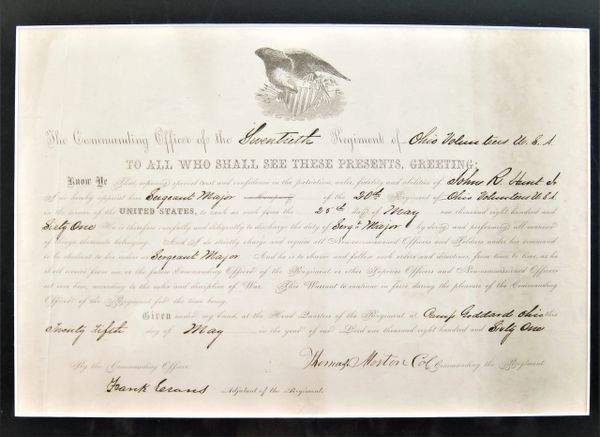 The Commanding Officer of the Twentieth Regiment of Ohio Volunteers U.S.A
TO ALL WHO SHALL SEE THESE PRESENTS, GREETING:
Know Ye That reposing special trust and confidence in the patriotism, valor, fidelity and abilities of John R. Hunt Jr
I do hereby appoint him Sergeant Major of the 20th Regiment of Ohio Volunteers U.S.A.
in the service of the UNITED STATES, to rank as such from the 25th day of May one thousand eight hundred and
Sixty One He is therefore carefully and diligently to discharge the duty of Sergt Major by doing and performing all manner
of things thereunto belonging. And I do strictly charge and require all Non-commissioned Officers and Soldiers under his command
to be obedient to his orders as Sergeant Major And he is to observe and follow such orders and directions, from time to time, as he
shall receive from me, or the future Commanding Officer of the Regiment or other Superior Officers and Non-commissioned Officers
set over him, according to the rules and discipline of War. This Warrant to continue in force during the pleasure of the Commanding
Officer of the Regiment for the time being.
Given under my hand, at the Head Quarters of the Regiment, at Camp Goddard Ohio this
Twenty Fifth day of May in the year of our Lord one thousand eight hundred and Sixty One
By the Commanding Officer: Thomas Morton Col Commanding the Regiment.
Frank Evans Adjutant of the Regiment.